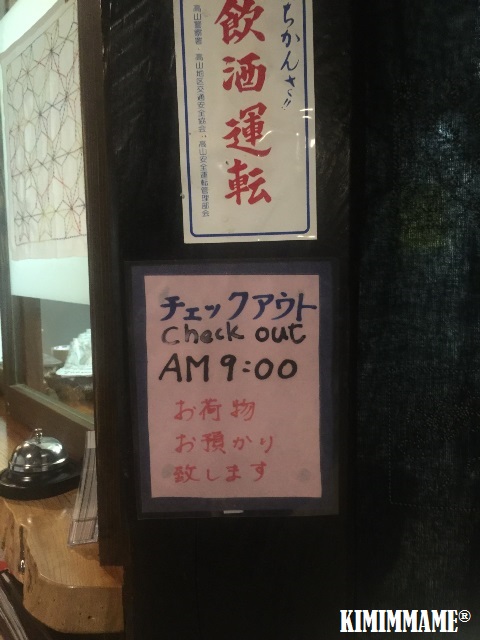 ちかんさ!!
飲酒運転
高山警察署・高山地区交通安全協会・高山安全運転管理部会
チェックアウト
Check out
AM 9:00
お荷物
お預かり
致します
KIMIMMAME®